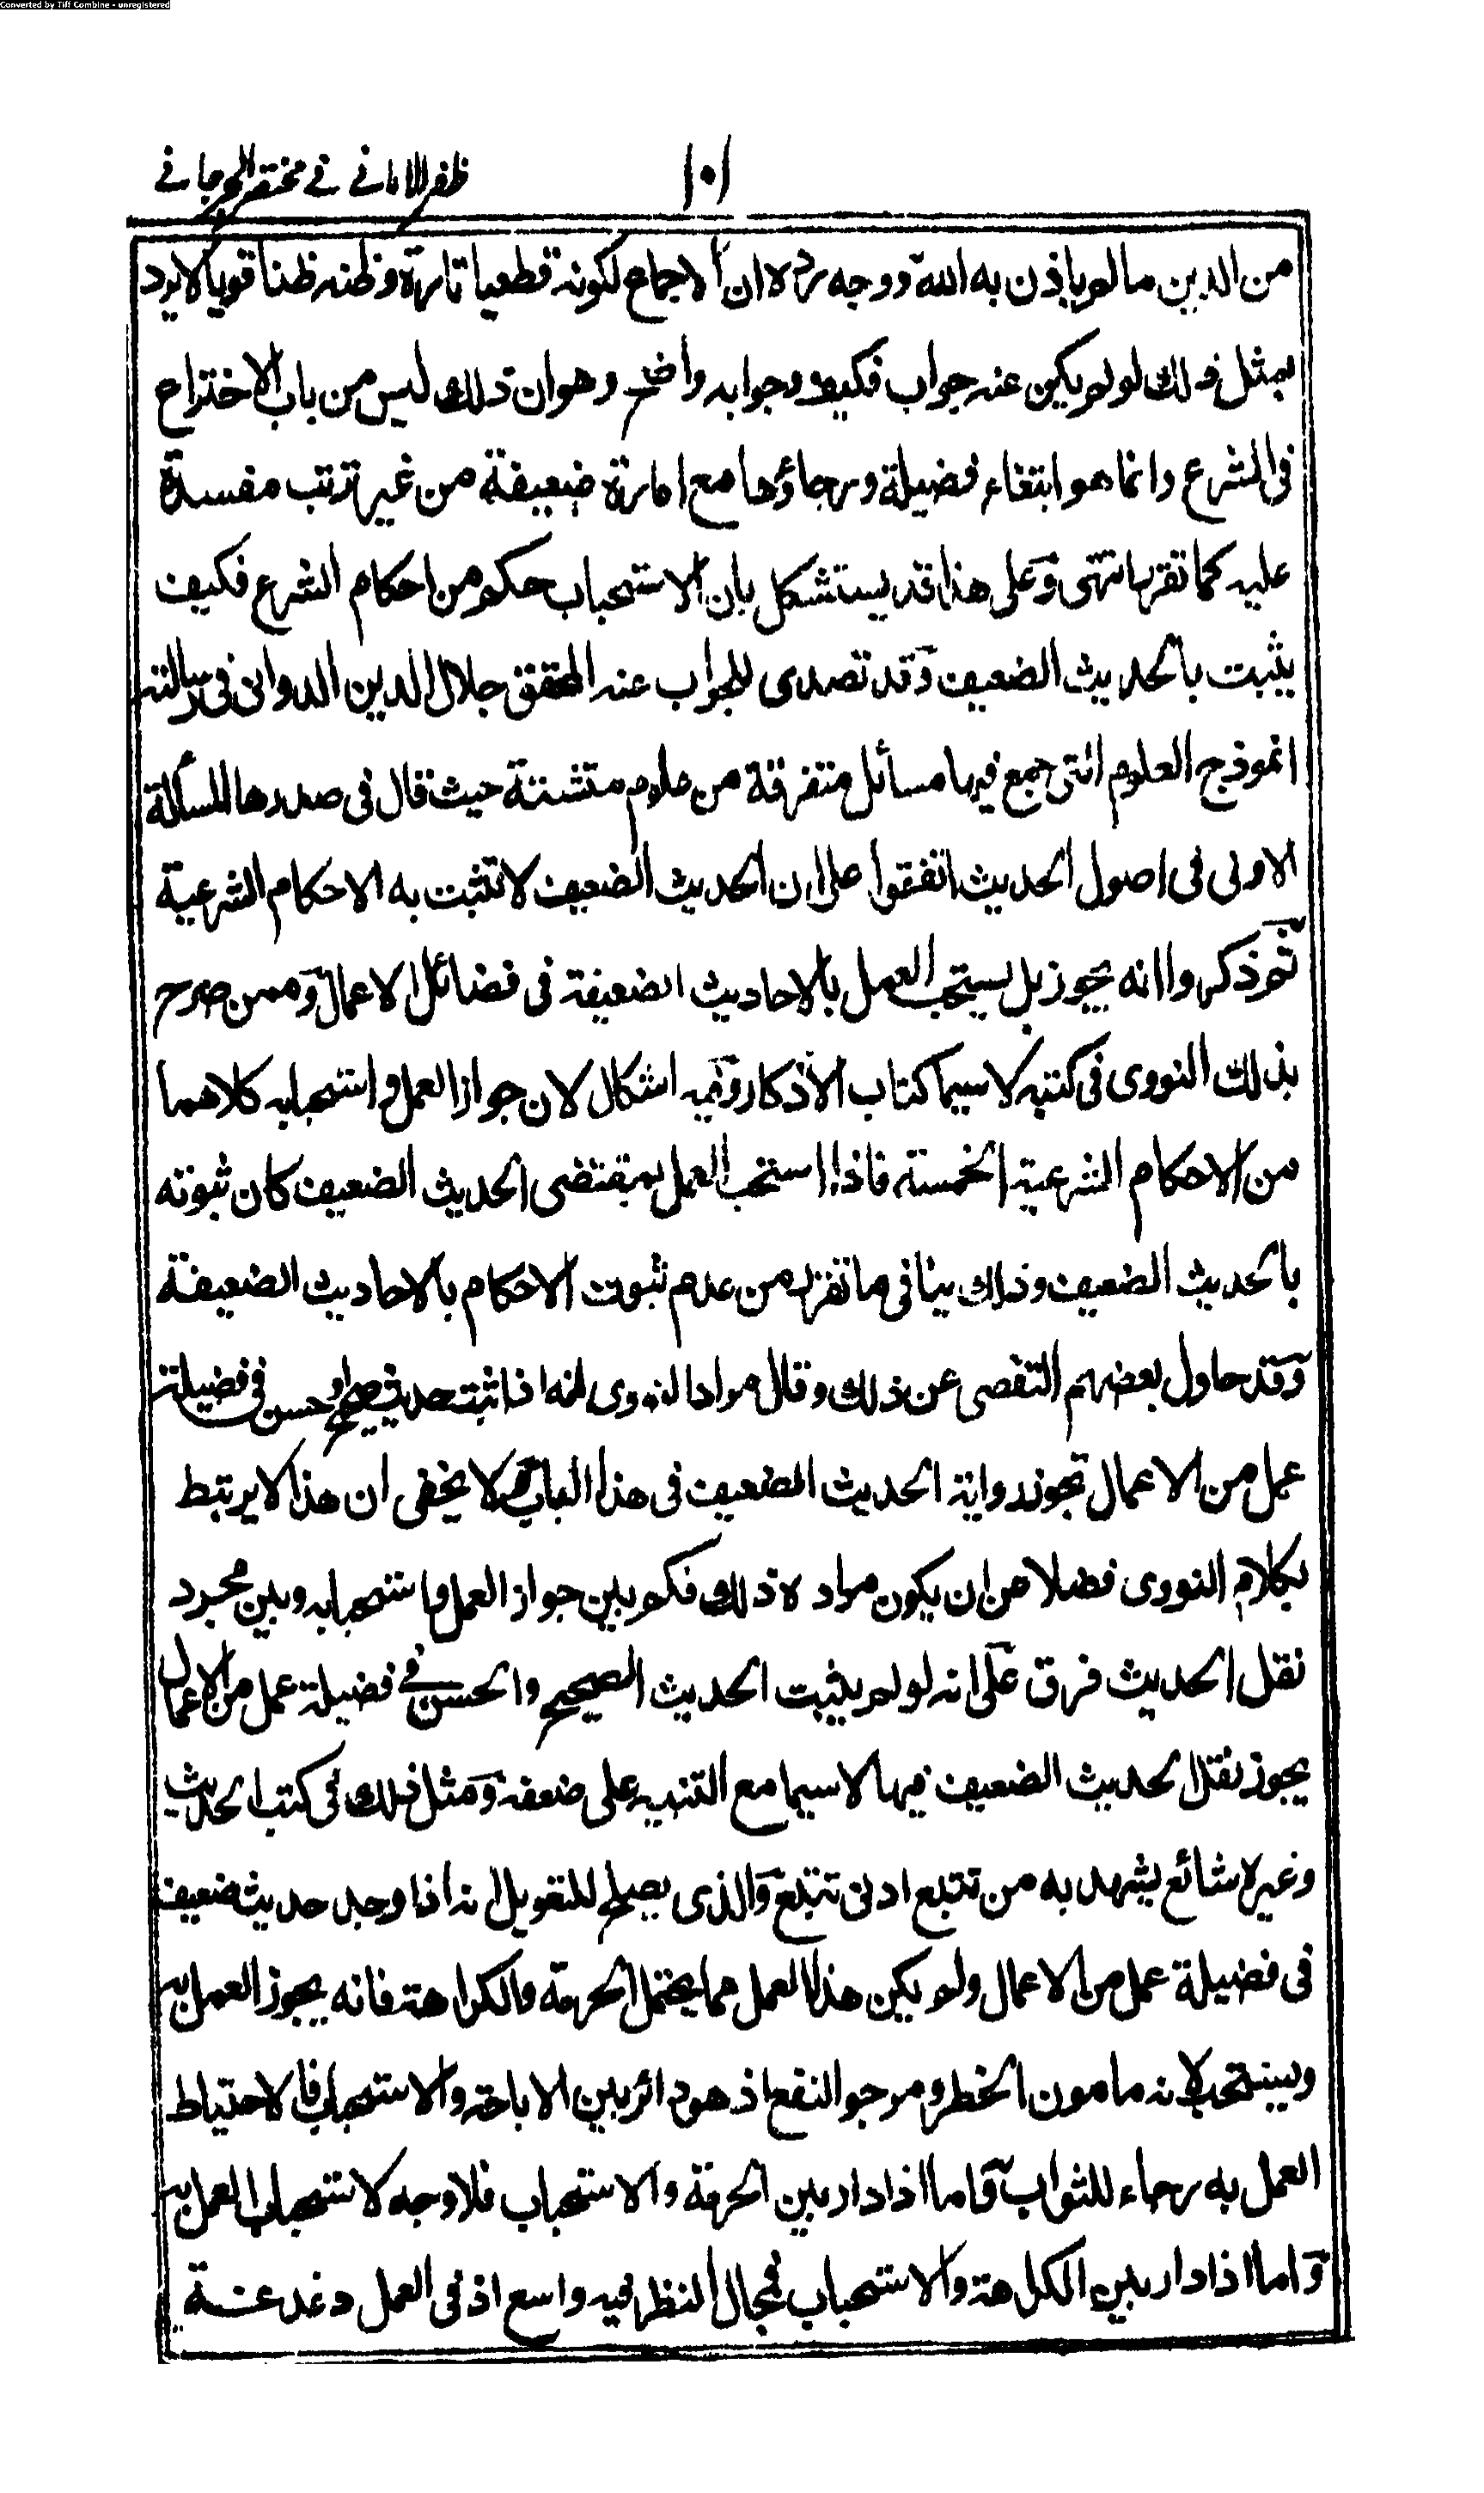 Converted by Tiff Combine - unregistered
ظفر الامانی فی مختصر الجرجانی
١٠١
من الدين مالم ياذن به الله ووجه رده ان الاجماع لكونه قطعيا تارة وظنه ظنا قويا لا يرد
بمثل ذلك لو لم يكن عنه جواب فكيف وجوابه واضح وهو ان ذلك ليس من باب الاختراع
فى الشرع وانما هو ابتغاء فضيلة ورجاؤها مع امارة ضعيفة من غير ترتب مفسدة
عليه كما تقرر انتهى وعلى هذا قد يستشكل بان الاستحباب حكم من احكام الشرع فكيف
يثبت بالحديث الضعيف وقد تصدى للجواب عنه المحقق جلال الدين الدوانى فى رسالته
انموذج العلوم التى جمع فيها مسائل متفرقة من علوم متشتتة حيث قال فى صدرها المسألة
الاولى فى اصول الحديث اتفقوا على ان الحديث الضعيف لا تثبت به الاحكام الشرعية
ثم ذكروا انه يجوز بل يستحب العمل بالاحاديث الضعيفة فى فضائل الاعمال وممن صرح
بذلك النووى فى كتبه لا سيما كتاب الاذكار وفيه اشكال لان جواز العمل واستحبابه كلاهما
من الاحكام الشرعية الخمسة فاذا استحب العمل بمقتضى الحديث الضعيف كان ثبوته
بالحديث الضعيف وذلك ينافى ما تقرر من عدم ثبوت الاحكام بالاحاديث الضعيفة
وقد حاول بعضهم التفصى عن ذلك وقال مراد النووى انه اذا ثبت حديث صحيح او حسن فى فضيلة
عمل من الاعمال تجوز رواية الحديث الضعيف فى هذا الباب ولا يخفى ان هذا لا يرتبط
بكلام النووى فضلا من ان يكون مراده ذلك فكم بين جواز العمل واستحبابه وبين مجرد
نقل الحديث فرق على انه لو لم يثبت الحديث الصحيح والحسن فى فضيلة عمل من الاعمال
يجوز نقل الحديث الضعيف فيها لا سيما مع التنبيه على ضعفه ومثل ذلك فى كتب الحديث
وغيره شائع يشهد به من تتبع ادنى تتبع والذى يصلح للتعويل انه اذا وجد حديث ضعيف
فى فضيلة عمل من الاعمال ولم يكن هذا العمل مما يحتمل الحرمة والكراهة فانه يجوز العمل به
ويستحب لانه مامون الخطر ومرجو النفع اذ هو دائر بين الاباحة والاستحباب فالاحتياط
العمل به رجاء للثواب واما اذا دار بين الحرمة والاستحباب فلا وجه لاستحباب العمل به
واما اذا دار بين الكراهة والاستحباب فمجال النظر فيه واسع اذ فى العمل دغدغة